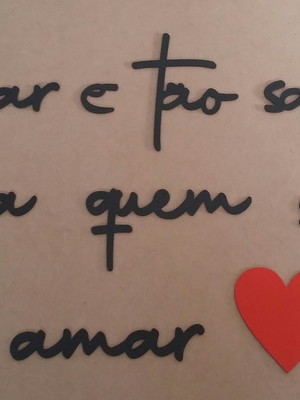 ar e tao sa
a quem s
amar